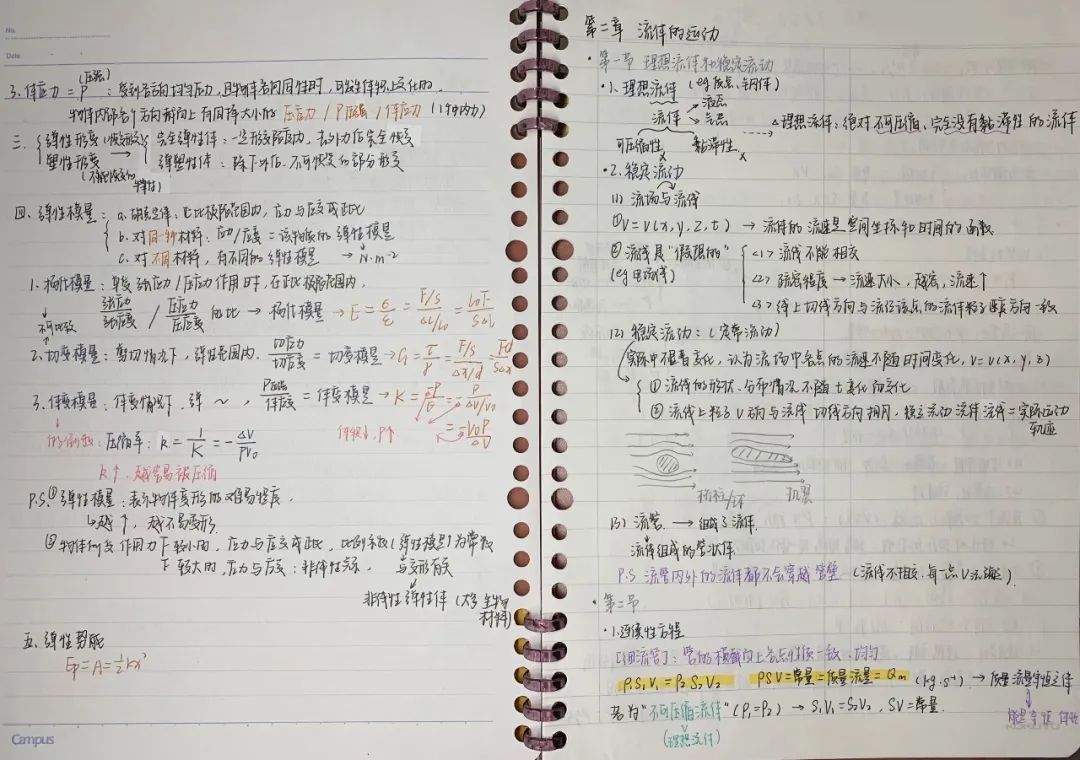 No.
Date
3.体应力 = P(压强):受到各向均匀压力,且物体各向同性时,可发生体积上变化的
物体内部各个方向截面上有同样大小的 压应力 / P压强 / 体应力 (1种内力)
三、{弹性形变(恢复形变) 塑性形变(不能恢复的特性) → { 完全弹性体:一定形变限度内,去外力后完全恢复
弹塑性体:除下外力后,不可恢复的部分形变
四、弹性模量:{ a. 正比极限范围内,应力与应变成正比
b. 对同一种材料:应力/应变 = 该物质的弹性模量
c. 对不同材料,有不同的弹性模量 → N·m⁻²
1.杨氏模量:单受张应力/压应力作用时,在正比极限范围内,
张应力/张应变 / 压应力/压应变 的比 → 杨氏模量 → E = σ/ε = (F/S)/(ΔL/L₀) = L₀F/SΔL
2.切变模量:剪切情况下,弹性范围内. 切应力/切应变 = 切变模量 → G = τ/γ = (F/S)/(Δx/d) = Fd/SΔx
3.体变模量:体变情况下,弹 ~ , P压强/体应变 = 体变模量 → K = -P/θ = -P/(ΔV/V₀)
= -V₀P/ΔV
体积↓,P↑
的倒数:压缩率:k = 1/K = -ΔV/PV₀
k↑,越容易被压缩
P.S.①弹性模量:表示物体变形的难易程度.
↳越↑,越不易变形
②物体所受作用力F较小时,应力与应变成正比,比例系数(弹性模量)为常数
F较大时,应力与应变:非线性关系. 与形变有关
非线性弹性体 (大多生物材料)
五、弹性势能
Ep = A = ½kx²
Campus
第二章 流体的运动
·第一节 理想流体和稳定流动
·1.理想流体 (eg.质点、刚体)
流体 液态 气态
可压缩性× 黏滞性× → △理想流体:绝对不可压缩、完全没有黏滞性的流体
·2.稳定流动
(1) 流场与流线
①V = V(x, y, z, t) → 流体的流速是空间坐标和时间的函数
②流线是"假想的" <1> 流线不能相交
(eg 电场线) <2> 疏密程度 → 流速大小,越密,流速↑
<3> 线上切线方向与流经该点的流体粒子速度方向一致
(2) 稳定流动:(定常流动)
实际中很难变化,认为流场中各点的流速不随时间变化,V = V(x, y, z)
①流体的形状、分布情况不随t变化而变化
②流线上粒子V方向与流线切线方向相同,稳定流动流体流线 = 实际运动轨迹
机翼
(3) 流管 → 组成了流体
流体组成的管状体
P.S 流管内外的流体都不会穿越管壁 (流线不相交,每一点V沿线).
·第二节
·1.连续性方程
[细流管]:管的横截面上各点性质一致、均匀
ρ₁S₁V₁ = ρ₂S₂V₂ ρSV = 常量 = 质量流量 = Qm (kg·s⁻¹) → 质量流量守恒定律
若为"不可压缩流体" (ρ₁=ρ₂) → S₁V₁ = S₂V₂,SV = 常量.
(理想流体)